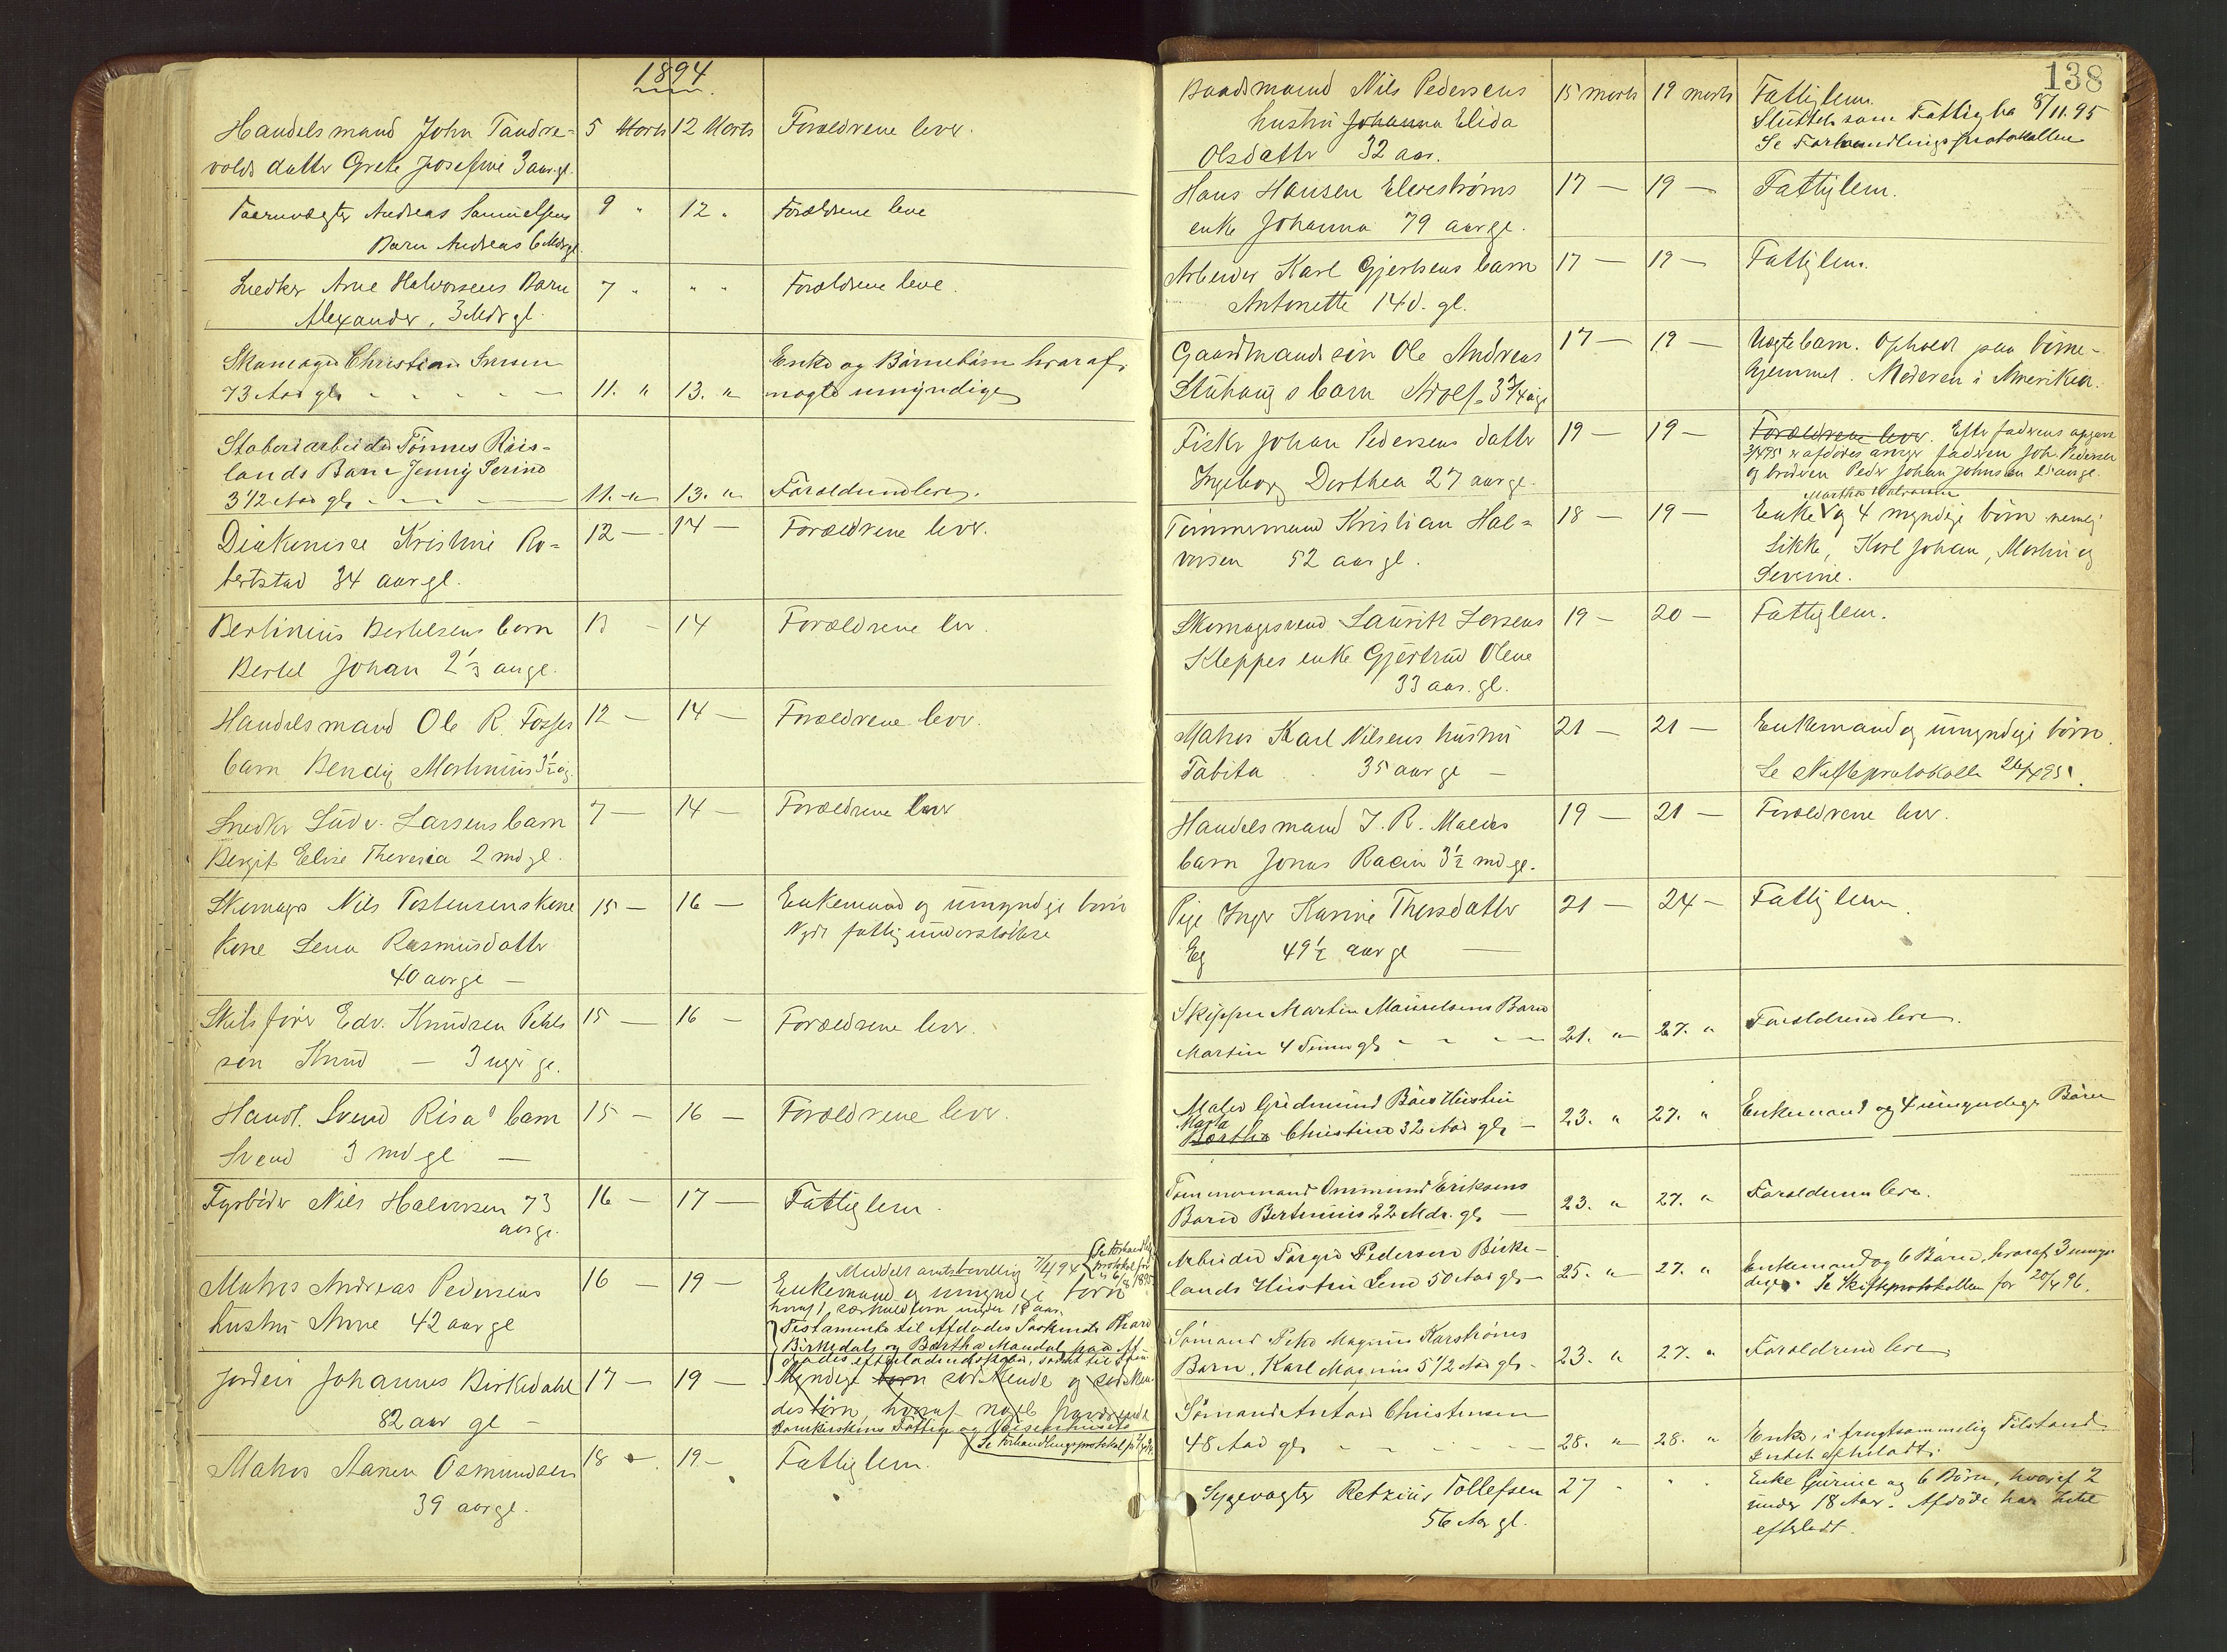 1894
Handelsmand John Tandre- 5 Marts 12 Marts Forældrene lever.
volds datter Grete Josefine 3 aar gl.
Taarnvægter Andreas Samuelsens 9 " 12 " Forældrene leve
Barn Andreas 6 Mdr gl.
Snedker Arne Halvorsens Barn 7 " " " Forældrene leve.
Alexander, 3 Mdr gl.
Skomager Christian Enke og Børnebørn hvoraf
73 Aar gl. 11. " 13. " nogle umyndige
Støberiarbeider Tønnes Røis-
lands Barn Jenny Serine
3 1/2 Aar gl. 11. " 13. " Forældrene leve.
Diakonisse Kristine Ro- 12 — 14 — Forældrene lever.
bertstad 34 aar gl.
Bertinius Bertelsens barn 13 — 14 Forældrene lev.
Bertel Johan 2 1/3 aar gl.
Handelsmand Ole R. Fosses 12 — 14 — Forældrene lever.
barn Bendig Martinius 3 1/2 aar g.
Snedker Ludv. Larsens barn 7 — 14 — Forældrene lever
Bergit Elise Theresia 2 md gl.
Skomager Nils Tostensens kone 15 — 16 — Enkemand og umyndige børn
kone Lena Rasmusdatter Nyder fattigunderstøttelse
40 aar gl —
Skibsfører Edv. Knudsen Pehls 15 — 16 — Forældrene lever.
søn Knud — 3 uger gl.
Handl. Svend Risa's barn 15 — 16 — Forældrene lever.
Svend 3 md gl —
Fyrbøder Nils Halvorsen 73 16 — 17 — Fattiglem.
aar gl.
Meddelt amtsbevilling 7/4 94
Matros Andreas Pedersens 16 — 19 — Enkemand og umyndige børn
hustru Anne 42 aar gl hvoraf 1 særkuldbarn under 18 aar.
Testamente til Afdødes Søskende
Birkedals og Bertha Mandal paa Af-
dødes efterladenskaber
Jordeier Johannes Birkedahl 17 — 19 — Myndige børn søskende og søsken-
82 aar gl — des børn, hvoraf nogle fraværende
Domkirkens Fattige og Waisenhuset
Se Forhandlingsprotokol
Matros Aanen Osmundsen 18 — 19 — Fattiglem.
39 aar gl.
138
Baadsmand Nils Pedersens 15 marts 19 marts Fattiglem.
hustru Johanna Elida Sluttet som Fattigbo 8/11.95
Olsdatter 32 aar. Se Forhandlingsprotokollen
Hans Hansen Elvestrøms 17 — 19 — Fattiglem.
enke Johanna 79 aar gl.
Arbeider Karl Gjertsens barn 17 — 19 — Fattiglem.
Antonette 14 d. gl.
Gaardmandssøn Ole Andreas 17 — 19 — Uægte barn. Ophold paa børne-
Stuhaugs barn Adolf 3 3/4 aar gl hjemmet. Moderen i Amerika.
Fisker Johan Pedersens datter 19 — 19 — Forældrene lever. Efter faderens opgave
Ingeborg Dorthea 27 aar gl. 3/4 95 er afdødes arvinger faderen Joh. Pedersen
og broderen Peder Johan Johnsen
Martha Halvorsen
Tømmermand Kristian Hal- 18 — 19 — Enke og 4 myndige børn nemlig
vorsen 52 aar gl. Sikke, Karl Johan, Martin og
Severine.
Skomagersvend Lauritz Larsens 19 — 20 — Fattiglem.
Kleppes enke Gjertrud Olene
33 aar. gl.
Matros Karl Nilsens hustru 21 — 21 — Enkemand og umyndige børn.
Tabita 35 aar gl — Se Skifteprotokollen 26/4 95.
Handelsmand J. R. Maldes 19 — 21 — Forældrene lever.
barn Jonas Racin 3 1/2 md gl.
Pige Inger Karine Thorsdatter 21 — 24 — Fattiglem.
Eg 49 1/2 aar gl —
Skipper Martin Mauritsens Barn
Martin 4 Timer gl. 21. " 27. " Forældrene leve.
Maler Gudmund Bøes Hustru
Maria
Bertha Christine 32 Aar gl. — 23. " 27. " Enkemand og 4 umyndige Børn
Tømmermand Ommund Eriksens
Barn Bertinius 22 Mdr. gl. — 23. " 27. " Forældrene leve.
Arbeider Torger Pedersen Birke-
lands Hustru Lene 50 Aar gl. — 25. " 27. " Enkemand og 6 Børn, hvoraf 3 umyn-
dige. Se Skifteprotokollen for 20/4 96.
Sømand Peter Magnus Karstrøms
Barn, Karl Magnus 5 1/2 Aar gl. — 23. " 27. " Forældrene leve.
Sømand Anton Christensen
48 Aar gl. 28. " 28. " Enke, i frugtsommelig Tilstand.
Intet efterladt.
Sygevogter Retzius Tollefsen 27 " " Enke Gurine og 6 Børn, hvoraf 2
56 Aar gl. under 18 Aar. Afdøde har intet
efterladt.